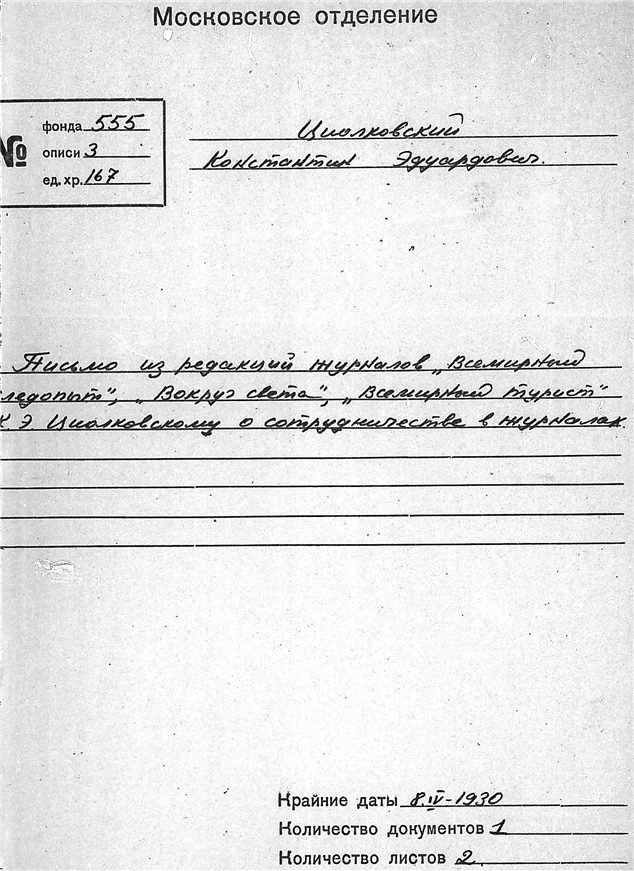 Московское отделение
№
фонда 555
описи 3
ед. хр. 167
Циолковский
Константин Эдуардович.
Письмо из редакций журналов „Всемирный
ледопыт", „Вокруг света", „Всемирный турист"
К Э Циолковскому о сотрудничестве в журналах.
Крайние даты 8.IV-1930
Количество документов 1
Количество листов 2